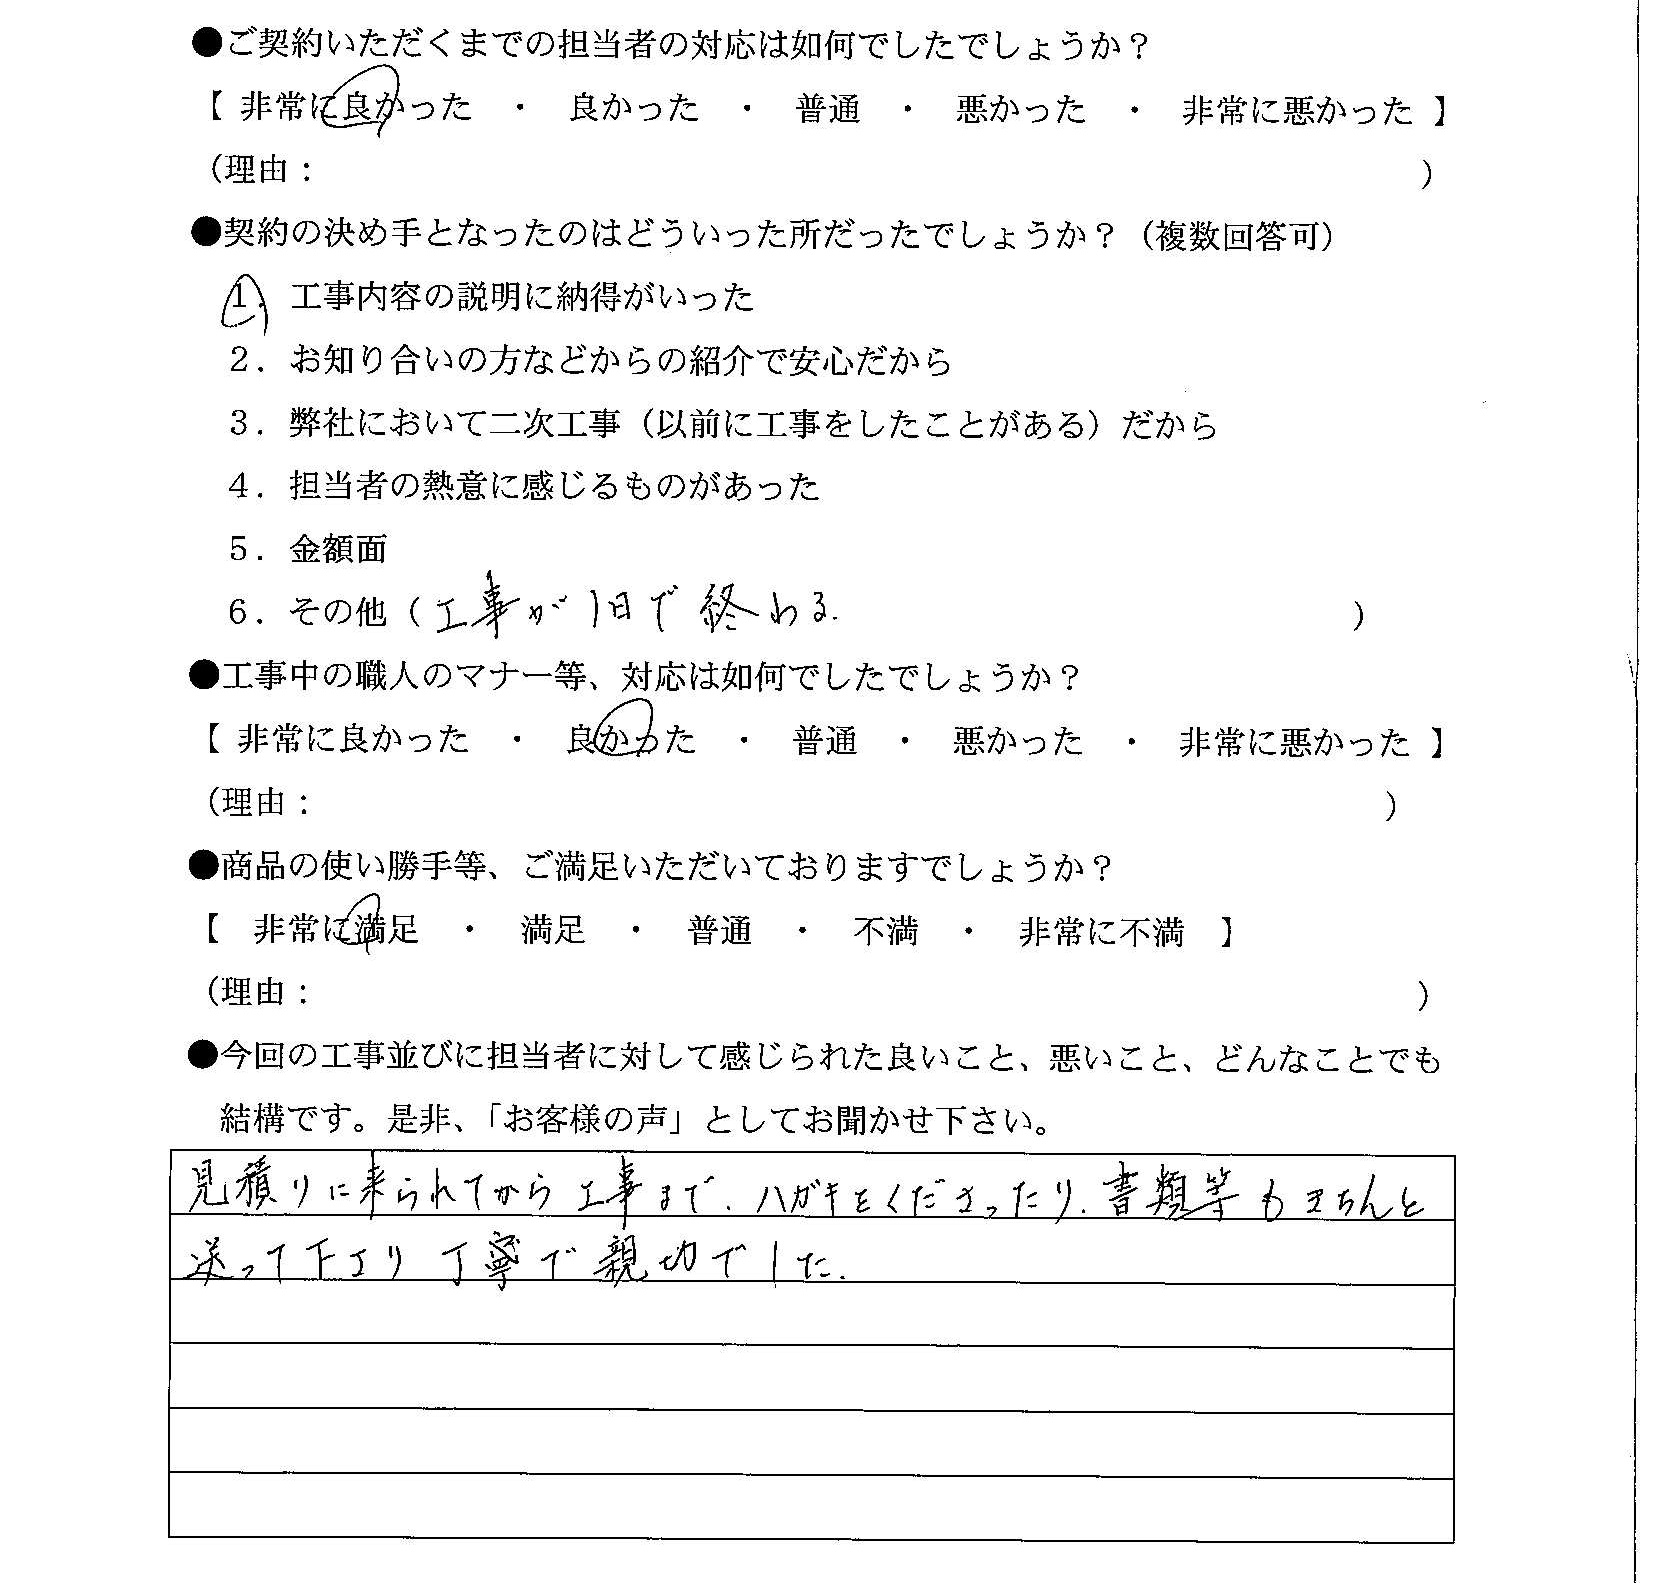 ●ご契約いただくまでの担当者の対応は如何でしたでしょうか？
【 非常に良かった ・ 良かった ・ 普通 ・ 悪かった ・ 非常に悪かった 】
（理由： ）
●契約の決め手となったのはどういった所だったでしょうか？（複数回答可）
1. 工事内容の説明に納得がいった
2. お知り合いの方などからの紹介で安心だから
3. 弊社において二次工事（以前に工事をしたことがある）だから
4. 担当者の熱意に感じるものがあった
5. 金額面
6. その他（工事が1日で終わる. ）
●工事中の職人のマナー等、対応は如何でしたでしょうか？
【 非常に良かった ・ 良かった ・ 普通 ・ 悪かった ・ 非常に悪かった 】
（理由： ）
●商品の使い勝手等、ご満足いただいておりますでしょうか？
【 非常に満足 ・ 満足 ・ 普通 ・ 不満 ・ 非常に不満 】
（理由： ）
●今回の工事並びに担当者に対して感じられた良いこと、悪いこと、どんなことでも
結構です。是非、「お客様の声」としてお聞かせ下さい。
見積りに来られてから工事まで、ハガキをくださったり、書類等もきちんと
送って下さり丁寧で親切でした.